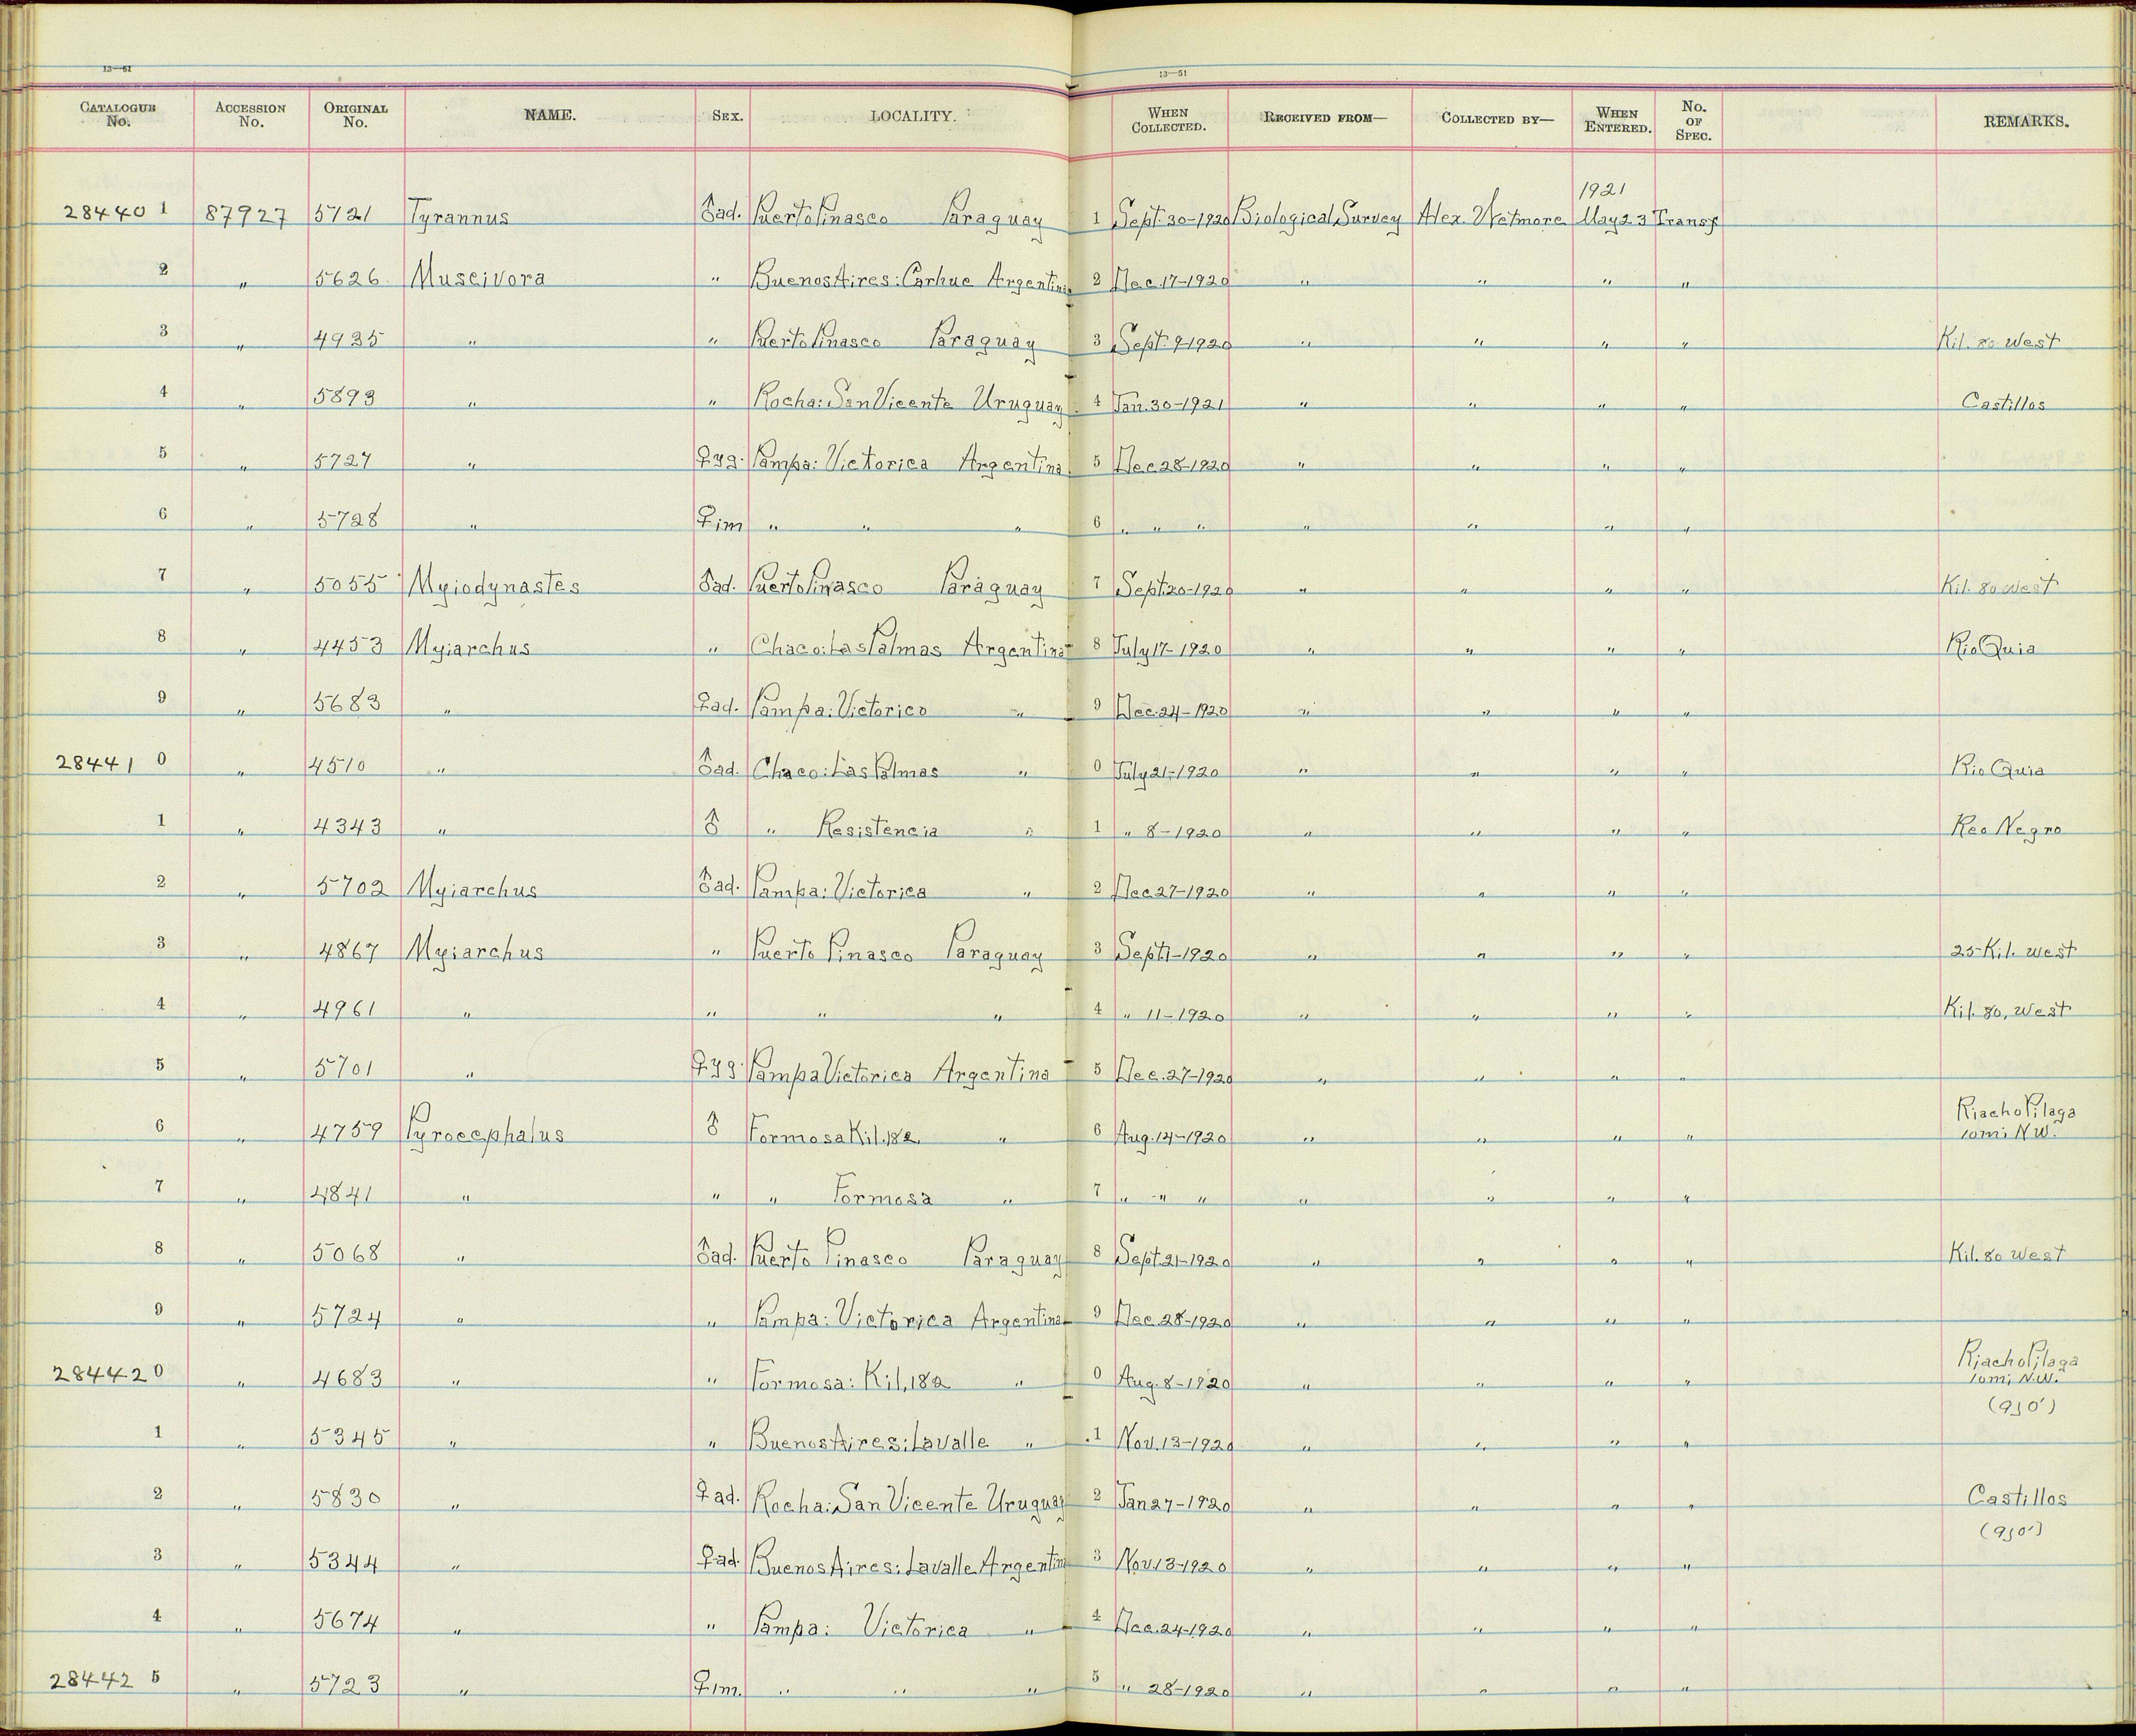 13—51 13—51
CATALOGUE No. ACCESSION No. ORIGINAL No. NAME. SEX. LOCALITY. WHEN COLLECTED. RECEIVED FROM— COLLECTED BY— WHEN ENTERED. No. OF SPEC. REMARKS.
1921
28440 1 87927 5121 Tyrannus ♂ad. Puerto Pinasco Paraguay 1 Sept. 30-1920 Biological Survey Alex. Wetmore May 23 Transf.
2 " 5626 Muscivora " Buenos Aires: Carhue Argentina 2 Dec. 17-1920 " " " "
3 " 4935 " " Puerto Pinasco Paraguay 3 Sept. 9-1920 " " " " Kil. 80 West
4 " 5893 " " Rocha: San Vicente Uruguay 4 Jan. 30-1921 " " " " Castillos
5 " 5727 " ♀yg. Pampa: Victorica Argentina 5 Dec 28-1920 " " " "
6 " 5728 " ♀im " " " 6 " " " " " " "
7 " 5055 Myiodynastes ♂ad. Puerto Pinasco Paraguay 7 Sept. 20-1920 " " " " Kil. 80 West
8 " 4453 Myiarchus " Chaco: Las Palmas Argentina 8 July 17-1920 " " " " Rio Quia
9 " 5683 " ♀ad. Pampa: Victorica " 9 Dec. 24-1920 " " " "
28441 0 " 4510 " ♂ad. Chaco: Las Palmas " 0 July 21-1920 " " " " Rio Quia
1 " 4343 " ♂ " Resistencia " 1 " 8-1920 " " " " Reo Negro
2 " 5702 Myiarchus ♂ad. Pampa: Victorica " 2 Dec 27-1920 " " " "
3 " 4867 Myiarchus " Puerto Pinasco Paraguay 3 Sept 1-1920 " " " " 25 Kil. West
4 " 4961 " " " " 4 " 11-1920 " " " " Kil. 80, West
5 " 5701 " ♀yg. Pampa Victorica Argentina 5 Dec. 27-1920 " " " "
6 " 4759 Pyrocephalus ♂ Formosa Kil. 182 " 6 Aug. 14-1920 " " " " Riacho Pilaga
10 mi NW.
7 " 4841 " " " Formosa " 7 " " " " " " "
8 " 5068 " ♂ad. Puerto Pinasco Paraguay 8 Sept. 21-1920 " " " " Kil. 80 West
9 " 5724 " " Pampa: Victorica Argentina 9 Dec. 28-1920 " " " "
28442 0 " 4683 " " Formosa: Kil, 182 " 0 Aug. 8-1920 " " " " Riacho Pilaga
10 mi N.W.
1 " 5345 " " Buenos Aires: Lavalle " 1 Nov. 13-1920 " " " " (9jo')
2 " 5830 " ♀ad. Rocha: San Vicente Uruguay 2 Jan 27-1920 " " " " Castillos
3 " 5344 " ♀ad. Buenos Aires: Lavalle Argentina 3 Nov. 13-1920 " " " " (9jo')
4 " 5674 " " Pampa: Victorica " 4 Dec. 24-1920 " " " "
28442 5 " 5723 " ♀im. " " " 5 " 28-1920 " " " "